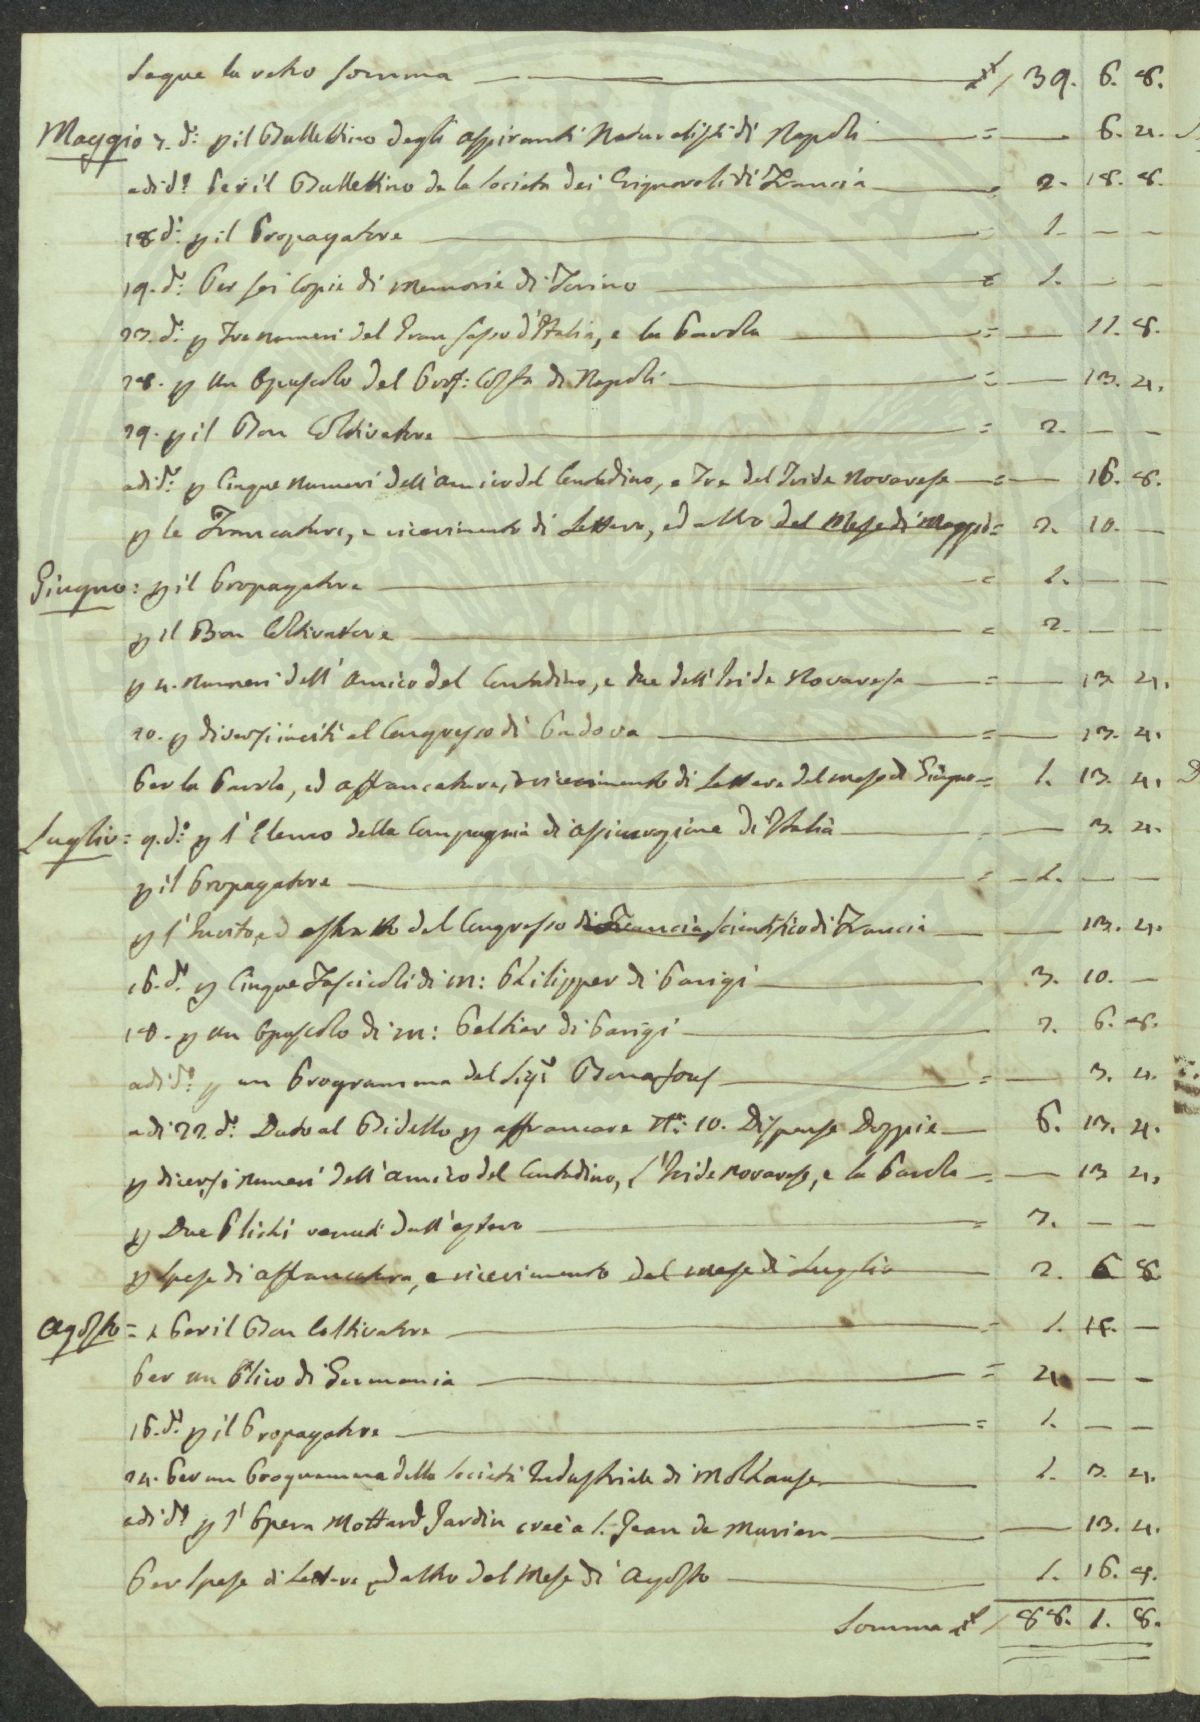 Segue la retro somma £ 39. 6. 8.
Maggio 7. d.o p il Bullettino degli Aspiranti Naturalisti di Napoli = — 6. 4.
adi d.o Per il Bullettino de la Societa dei Vignaroli di Francia 2. 18. 8.
18 d.o p il Propagatore = 1. — —
19. d.o Per sei Copie di Memorie di Torino = 1. — —
23. d.o p Tre numeri del Gran Sasso d'Italia, e la Parola = — 11. 8.
28. p un Opuscolo del Prof: Costa di Napoli = — 13. 4.
29. p il Bon Coltivatore = 2. — —
adi d.o p Cinque numeri dell'Amico del Contadino, e Tre del Iride Novarese = — 16. 8.
p le Francature, e ricevimento di Lettere, ed altro del Mese di Maggio = 2. 10. —
Giugno: p il Propagatore = 1. — —
p il Bon Coltivatore = 2. — —
p 4. Numeri dell'Amico del Contadino, e due dell'Iride Novarese = — 13 4.
20. p diversi inviti al Congresso di Padova = — 13. 4.
Per la Parola, ed affrancature, e ricevimento di Lettere del mese di Giugno = 1. 13. 4.
Luglio = 9. d.o p l'Elenco della Compagnia di Assicurazione di Italia — 3. 4.
p il Propagatore = 1. — —
p l'Invito, ed estratto del Congresso di Francia Scientifico di Francia — 13. 4.
16. d.o p Cinque Fascicoli di M: Philipper di Parigi 3. 10. —
18. p un Opuscolo di M: Peltier di Parigi 2. 6. 8.
adi d.o p un Programma del Sig.r Bonafous = — 3. 4.
adi 22. d.o Dato al Bidello p affrancare N.o 10. Dispense Doppie 6. 13. 4.
p diversi Numeri dell'Amico del Contadino, l'Iride Novarese, e la Parola = — 13 4.
p Due Plichi venuti dall'estero = 3. — —
p spese di affrancatura, e ricevimento del mese di Luglio 2. 6 8
Agosto = Per il Bon Coltivatore = 1. 18. —
Per un Plico di Germania = 4 — —
16. d.o p il Propagatore = 1. — —
24. Per un Programma della Società Industriale di Molhause 1. 3. 4.
adi d.o p l'Opera Mottard Jardin creé a S. Jean de Murien — 13. 4.
Per spese di Lettere ed altro del Mese di Agosto 1. 16. 4.
Somma £ 88. 1. 8.